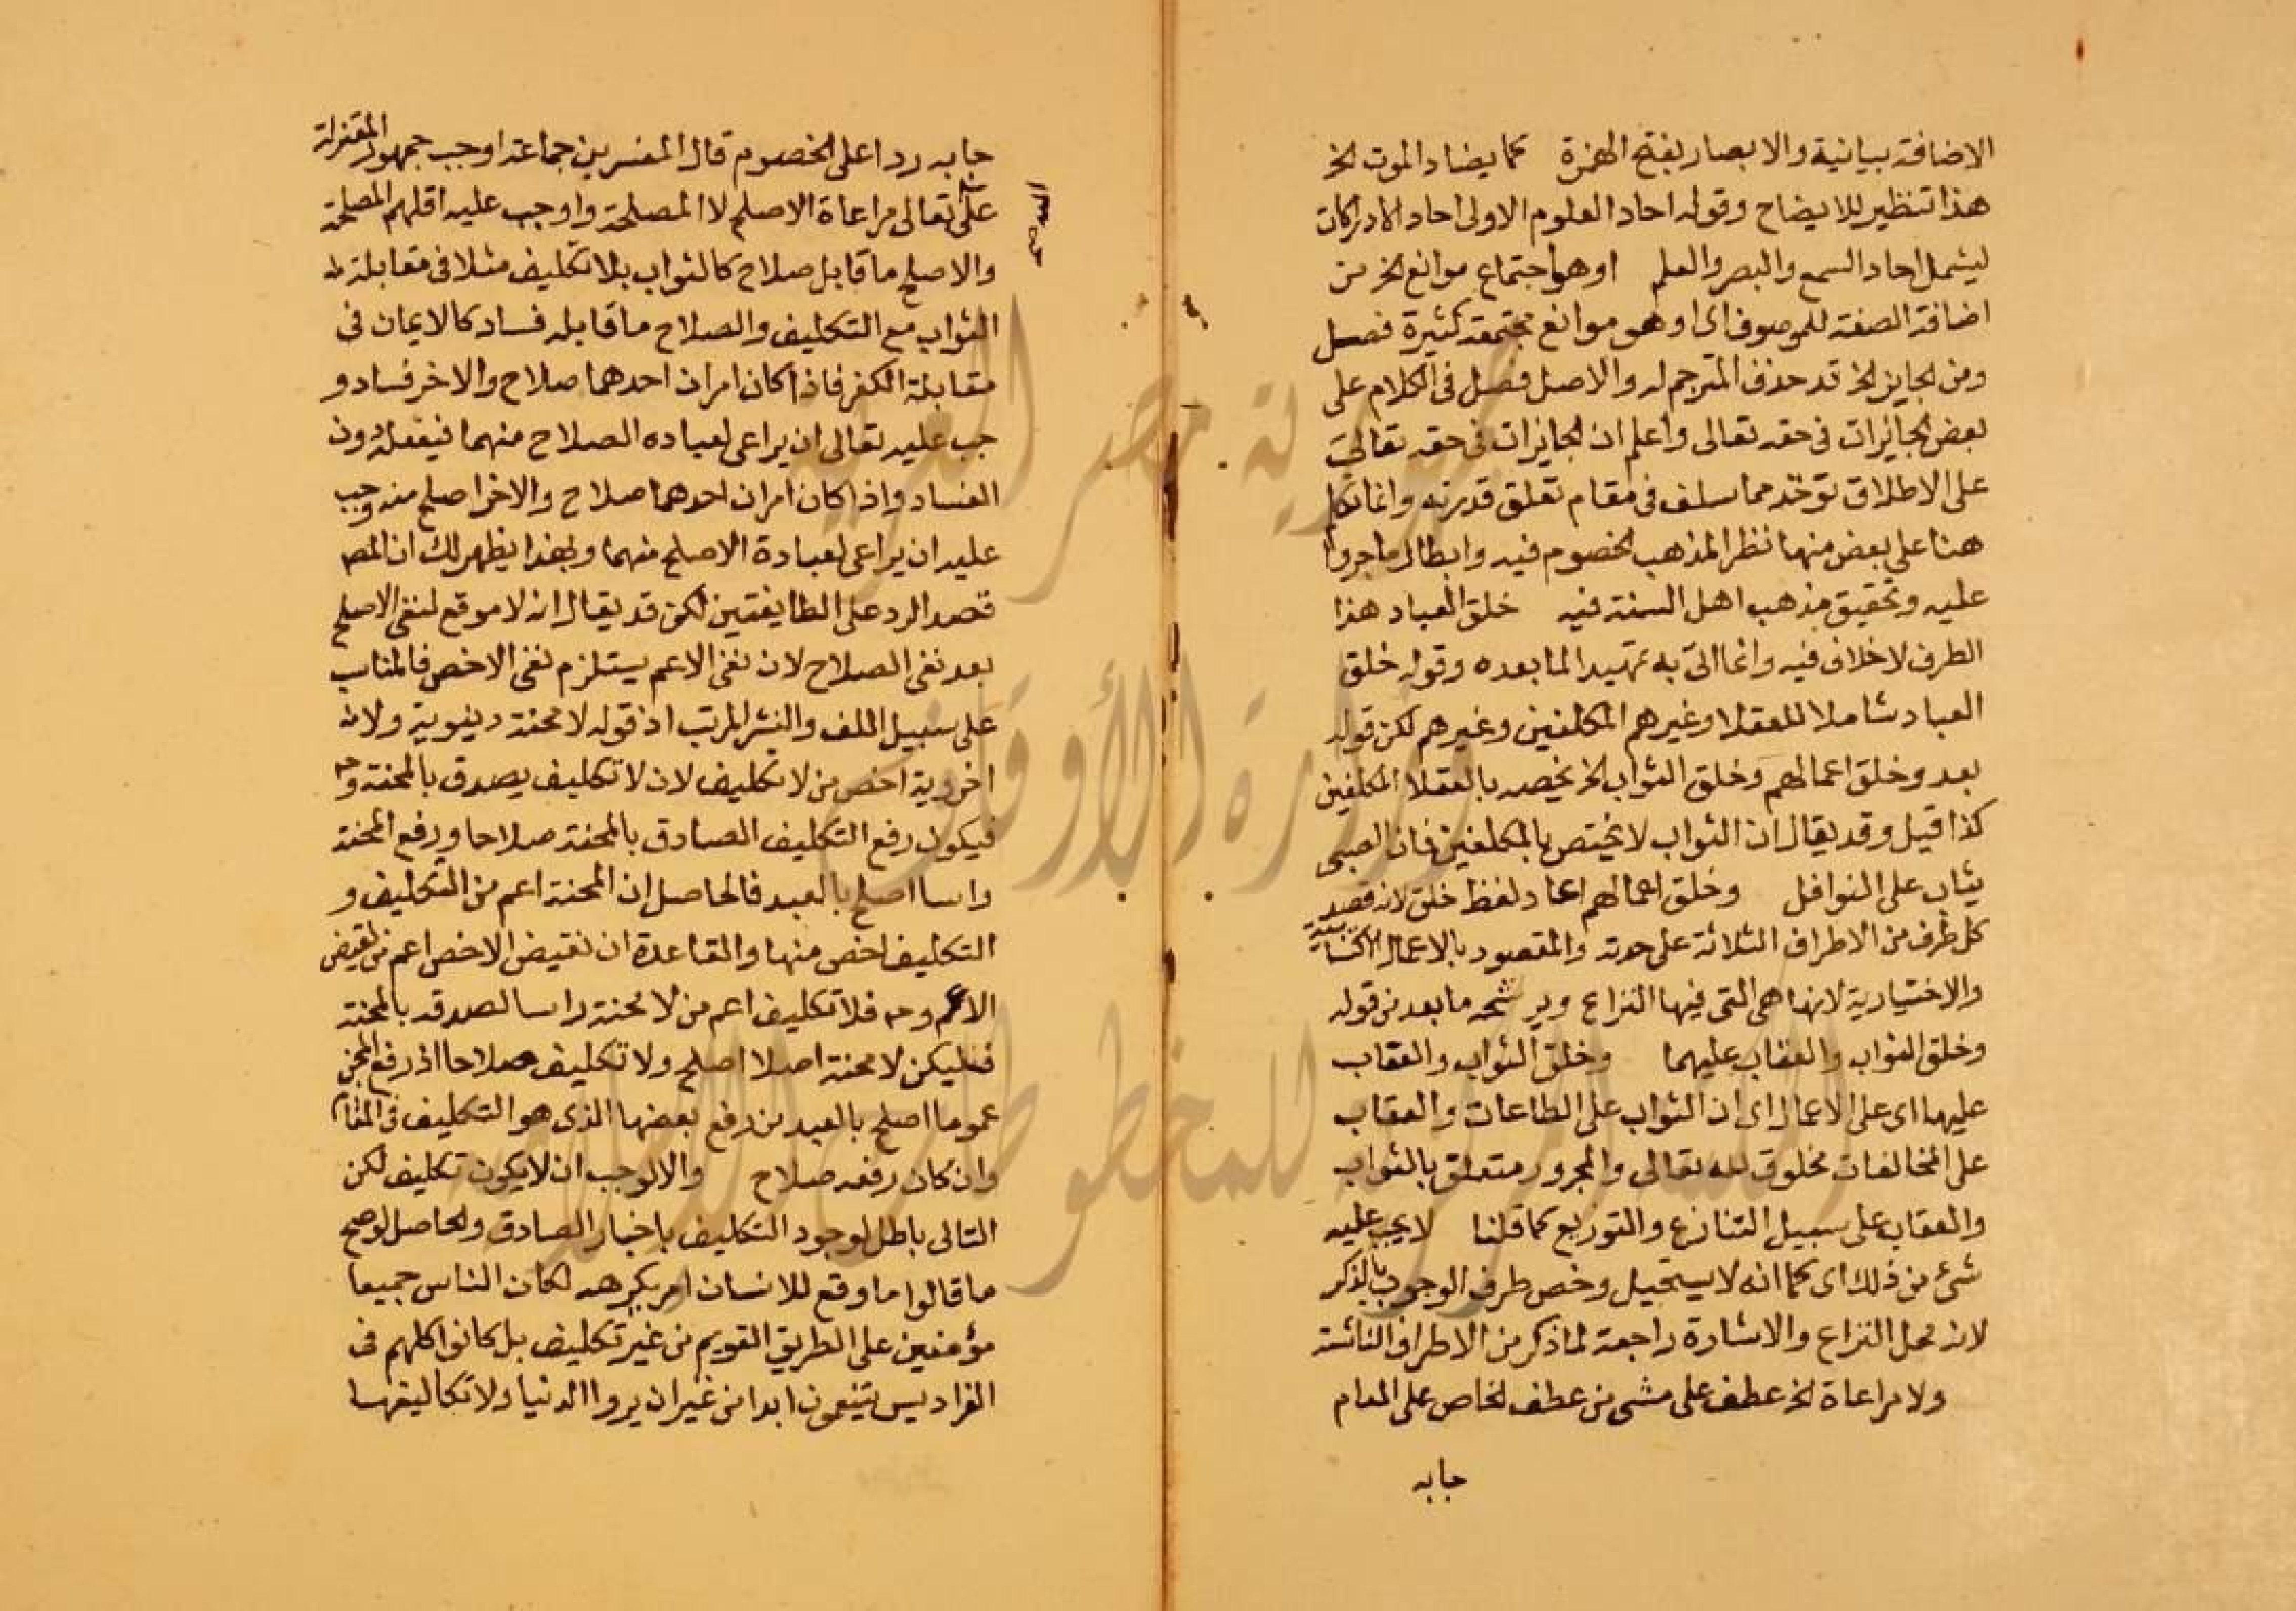 الاضافة بيانية والابصار بفتح الهمزة كما يضاد الموت الخ
هذا تنظير للايضاح وقوله احاد العلوم الاولى احاد الادراكات
ليشمل احاد السمع والبصر والعلم او هو اجتماع موانع الخ من
اضافة الصفة للموصوف اى او هو موانع مجتمعة كثيرة فصل
ومن الجايز الخ قد حذف المترجم له والاصل فصل فى الكلام على
بعض الجايزات فى حقه تعالى واعلم ان الجايزات فى حقه تعالى
على الاطلاق توخذ مما سلف فى مقام تعلق قدرته وانما تكلم
هنا على بعض منها نظرا لمذهب الخصوم فيه وابطال ما جروا
عليه وتحقيق مذهب اهل السنة فيه خلق العباد هذا
الطرف لا خلاف فيه وانما اتى به تمهيدا لما بعده وقوله خلق
العباد شاملا للعقلا وغيرهم المكلفين وغيرهم لكن قوله
بعد وخلق اعمالهم وخلق الثواب الخ يخصه بالعقلا المكلفين
كذا قيل وقد يقال ان الثواب لا يختص بالمكلفين فان الصبى
يثاب على النوافل وخلق اعمالهم اعاد لفظ خلق لانه قصد
كل طرف من الاطراف الثلاثة على حدته والمقصود بالاعمال
والاختيارية لانها هى التى فيها النزاع ويرشحه ما بعد من قوله
وخلق الثواب والعقاب عليهما وخلق الثواب والعقاب
عليها اى على الاعمال اى ان الثواب على الطاعات والعقاب
على المخالفات مخلوق لله تعالى والمجرور متعلق بالثواب
والعقاب على سبيل التنازع والتوزيع كما قلنا لا يجب عليه
شئ من ذلك اى كما انه لا يستحيل وخص طرف الوجوب بالذكر
لانه محل النزاع والاشارة راجعة لما ذكر من الاطراف
ولا مراعاة الخ عطف على مشى من عطف الخاص على العام
جا به
جا به ردا على الخصوم قال المفسرين جماعة اوجب جمهور المعتزلة
على الله تعالى مراعاة الاصلح لا المصلحة واوجب عليه اقلهم المصلحة
والاصلح ما قابل صلاح كالثواب بلا تكليف مثلا فى مقابلة
الثواب مع التكليف والصلاح ما قابله فساد كالايمان فى
مقابلة الكفر فاذا كان امران احدهما صلاح والاخر فساد و
جب عليه تعالى ان يراعى لعباده الصلاح منهما فيفعله دون
الفساد واذا كان امران احدهما صلاح والاخر اصلح منه وجب
عليه ان يراعى لعباده الاصلح منهما وبهذا يظهر لك ان المص
قصد الرد على الطايفتين لكن قد يقال انه لا موقع لنفى الاصلح
بعد نفى الصلاح لان نفى الاعم يستلزم نفى الاخص فالمناسب
على سبيل اللف والنشر المرتب اذ قوله لا محنة دنيوية ولا
اخروية اخص من لا تكليف لان لا تكليف يصدق بالمحنة وح
فيكون رفع التكليف الصادق بالمحنة صلاحا ورفع المحنة
راسا اصلح بالعبد فالحاصل ان المحنة اعم من التكليف و
التكليف اخص منها والقاعدة ان نقيض الاخص اعم من نقيض
الاعم وح فلا تكليف اعم من لا محنة راسا لصدقه بالمحنة
فليكن لا محنة اصلا اصلح ولا تكليف صلاحا اذ رفع المحن
عموما اصلح بالعبد من رفع بعضها الذى هو التكليف فى المقام
وان كان رفعه صلاح والا لوجب ان لا يكون تكليف لكن
التالى باطل لوجود التكليف باخبار الصادق والحاصل لو صح
ما قالوا ما وقع للانسان امر يكرهه لكان الناس جميعا
مؤمنين على الطريق القويم من غير تكليف بل كانوا كلهم فى
الفراديس يتنعمون ابدا من غير ان يروا الدنيا ولا تكاليفها